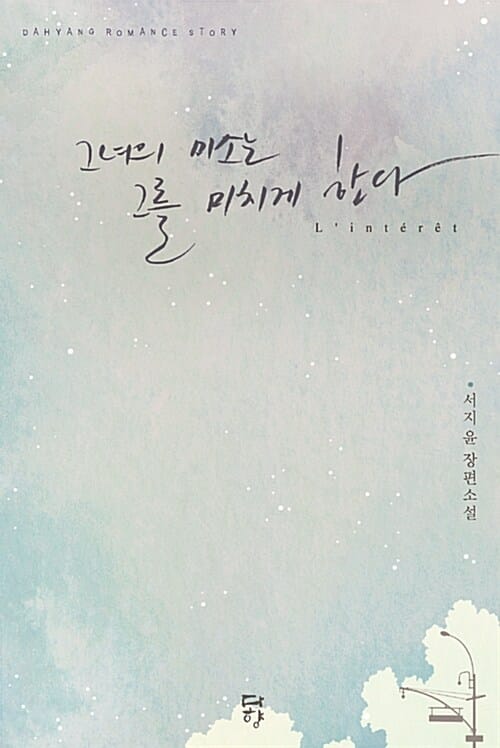 DAHYANG ROMANCE STORY
그녀의 미소는
그를 미치게 한다
L'intérêt
서지윤 장편소설
다향